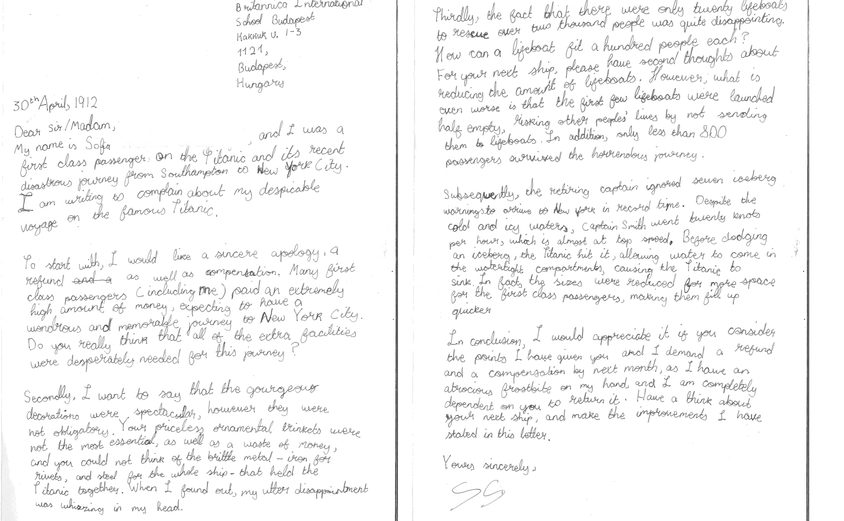 Britannica International
School Budapest
Kakkuk u. 1-3
1121,
Budapest,
Hungary
30th April, 1912
Dear Sir/Madam,
My name is Sofia , and I was a
first class passenger on the Titanic and its recent
disastrous journey from Southampton to New York City.
I am writing to complain about my despicable
voyage on the famous Titanic.
To start with, I would like a sincere apology, a
refund and a as well as compensation. Many first
class passengers (including me) paid an extremely
high amount of money, expecting to have a
wondrous and memorable journey to New York City.
Do you really think that all of the extra facilities
were desperately needed for this journey?
Secondly, I want to say that the gourgeous
decorations were, spectacular, however they were
not obligatory. Your priceless ornamental trinkets were
not, the most essential, as well as a waste of money,
and you could not think of the brittle metal - iron for
rivets, and steel for the whole ship - that held the
Titanic together. When I found out, my utter disappointment
was whizzing in my head.
Thirdly, the fact that there were only twenty lifeboats
to rescue over two thousand people was quite disappointing.
How can a lifeboat fit a hundred people each?
For your next ship, please have second thoughts about
reducing the amount of lifeboats. However, what is
even worse is that the first few lifeboats were launched
half empty, risking other peoples' lives by not sending
them to lifeboats. In addition, only less than 800
passengers survived the horrendous journey.
Subsequently, the retiring captain ignored seven iceberg
warnings to arrive to New York in record time. Despite the
cold and icy waters, Captain Smith went twenty knots
per hour, which is almost at top speed. Before dodging
an iceberg, the Titanic hit it, allowing water to come in
the watertight compartments, causing the Titanic to
sink. In fact, the sizes were reduced for more space
for the first class passengers, making them fill up
quicker
In conclusion, I would appreciate it if you consider
the points I have given you and I demand a refund
and a compensation by next month, as I have an
atrocious frostbite on my hand and I am completely
dependent on you to return it. Have a think about
your next ship, and make the improvements I have
stated in this letter.
Yours sincerely,
SS